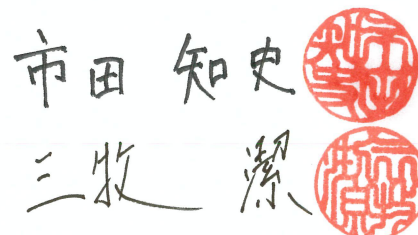 市田 知史
三牧 潔